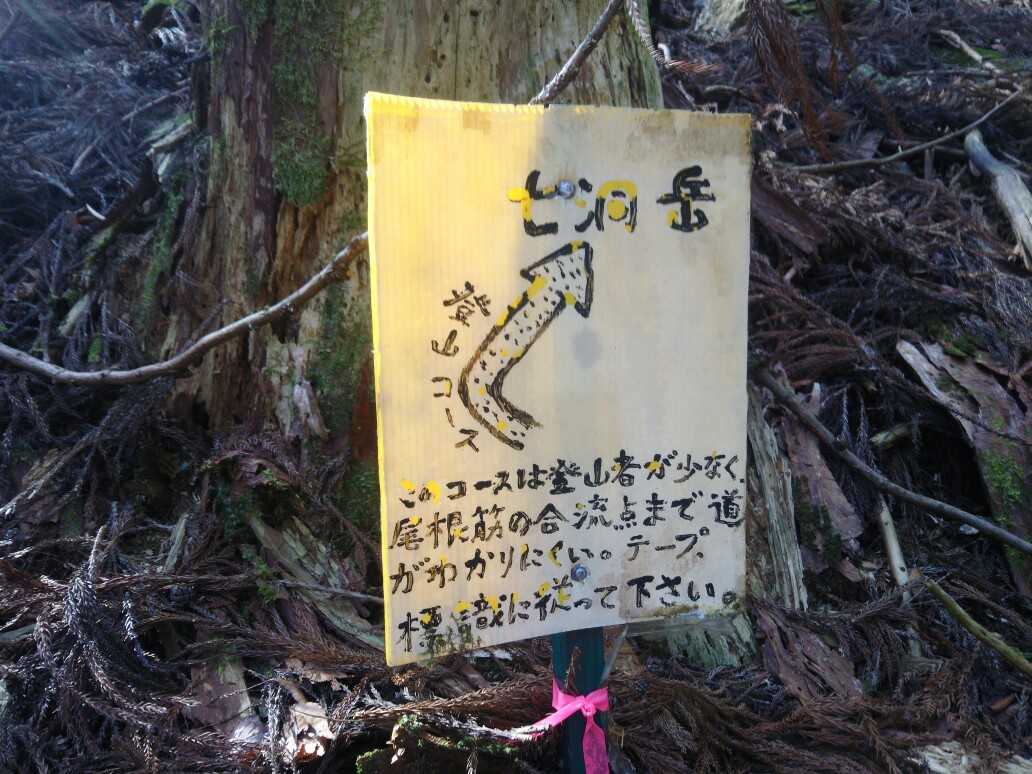 七洞岳
登山コース
このコースは登山者が少なく
尾根筋の合流点まで道
がわかりにくい。テープ、
標識に従って下さい。